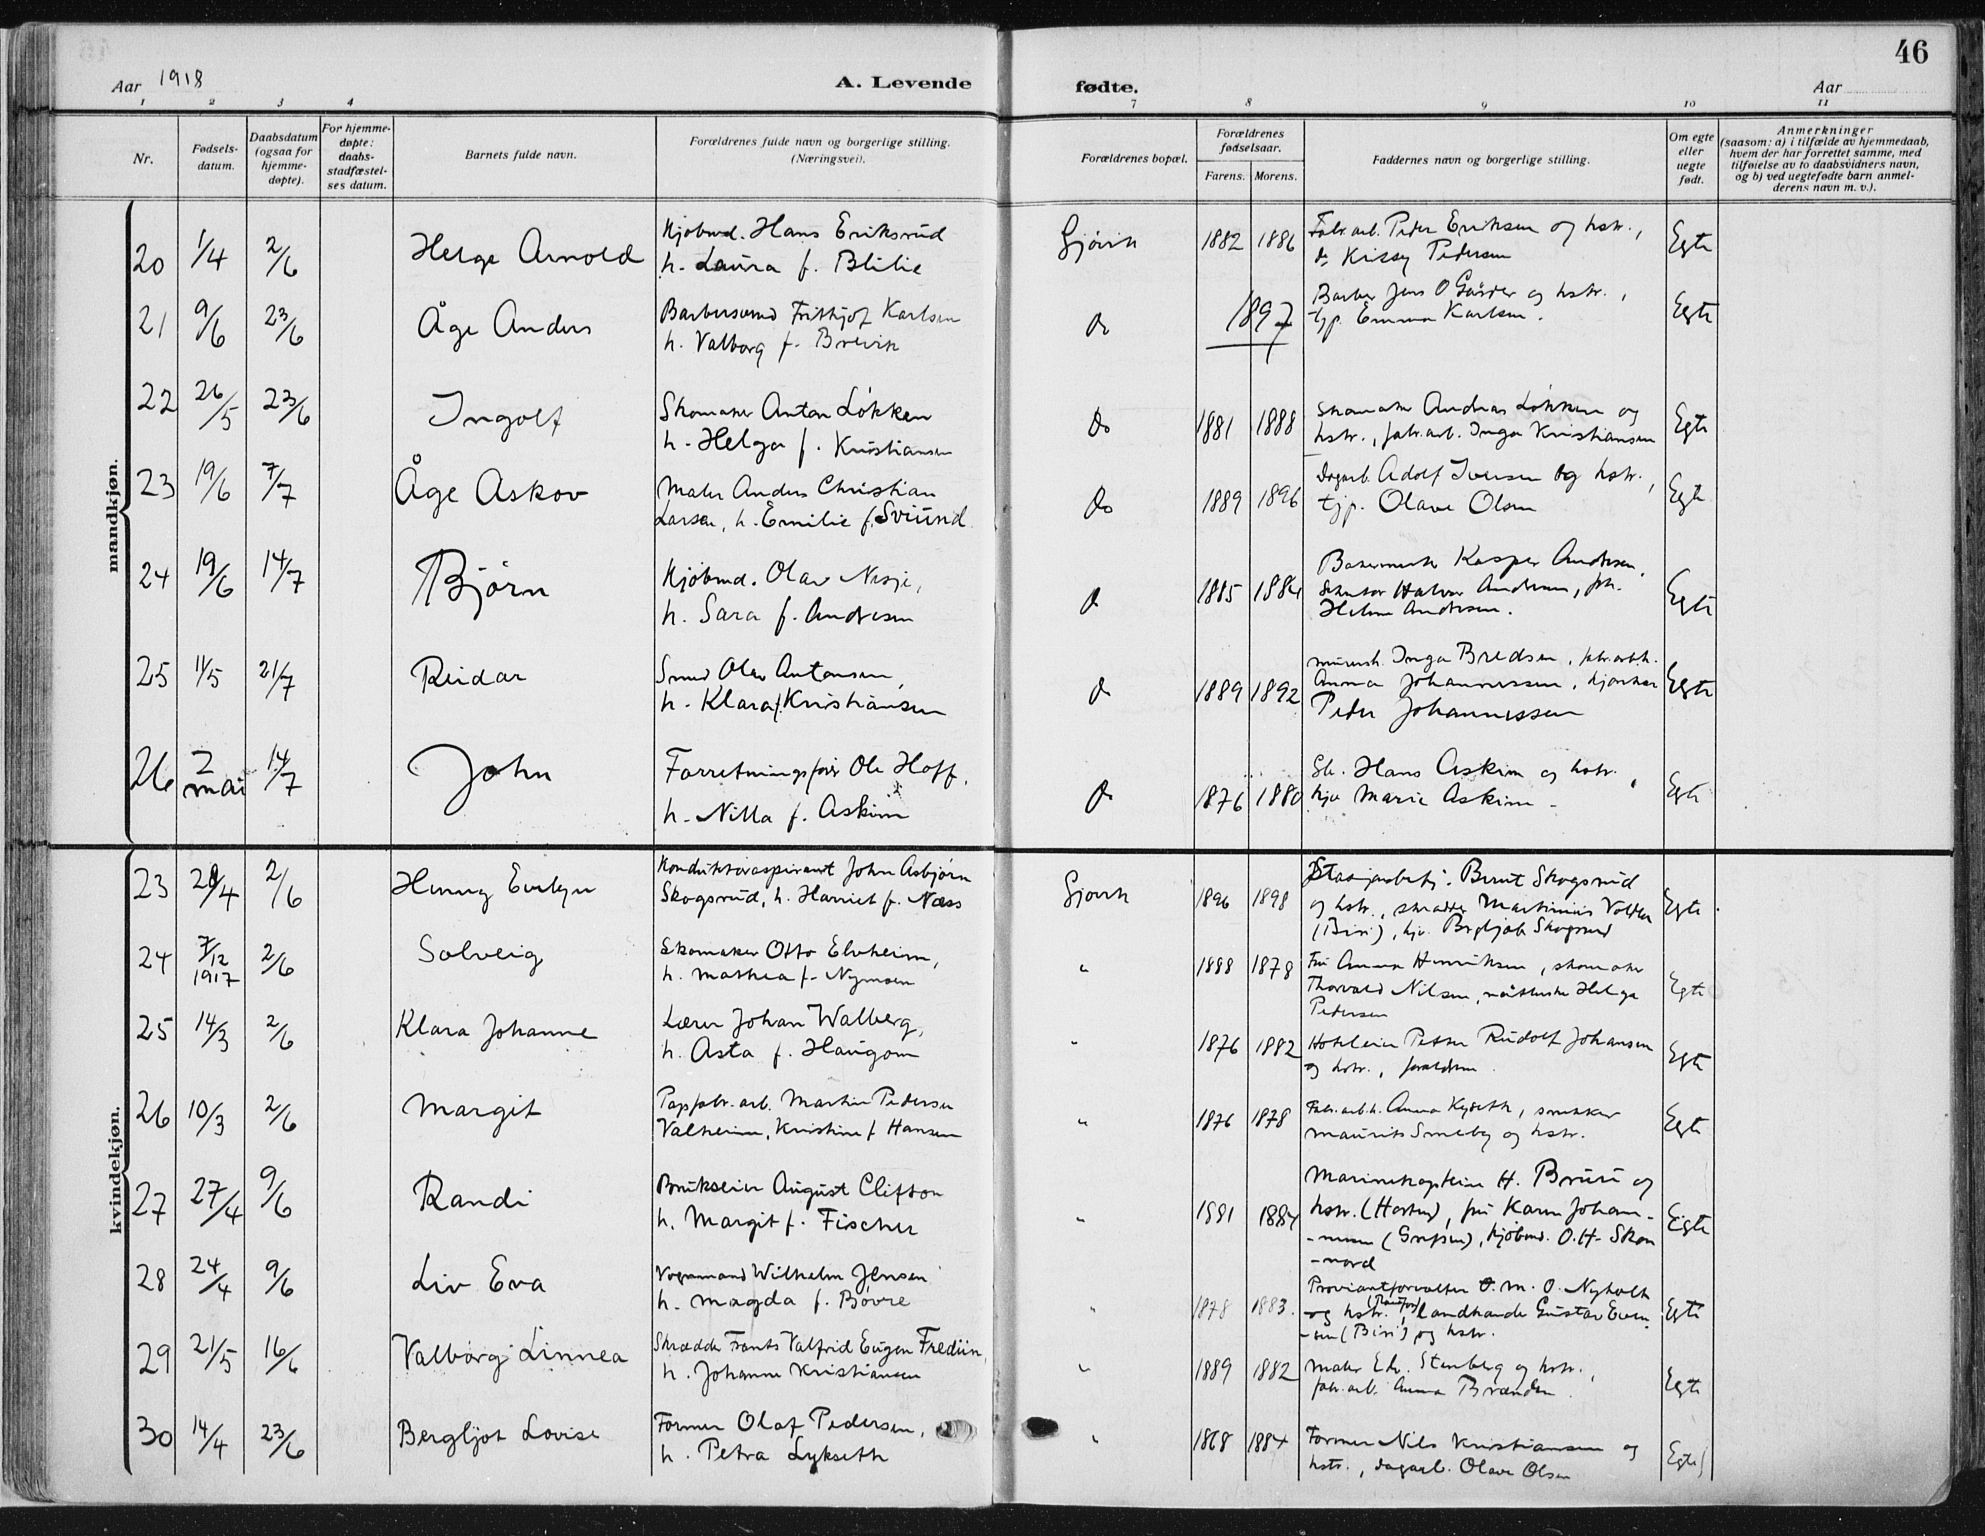 46
Aar 1918
A. Levende
fødte.
Aar
1 2 3 4 7 8 9 10 11
Nr.
Fødsels-
datum.
Daabsdatum
(ogsaa for
hjemme-
døpte).
For hjemme-
døpte:
daabs-
stadfæstel-
ses datum.
Barnets fulde navn.
Forældrenes fulde navn og borgerlige stilling.
(Næringsvei).
Forældrenes bopæl.
Forældrenes
fødselsaar.
Farens. Morens.
Faddernes navn og borgerlige stilling.
Om egte
eller
uegte
født.
Anmerkninger
(saasom: a) i tilfælde av hjemmedaab,
hvem der har forrettet samme, med
tilføielse av to daabsvidners navn,
og b) ved uegtefødte barn anmel-
derens navn m. v.).
mandkjøn.
20 1/4 2/6 Helge Arnold Kjøbmd. Hans Eriksrud
h. Laura f. Blilie
Gjøvik 1882 1886 Fabr.arb. Peder Eriksen og hstr.,
do Kissy Pedersen
Egte
21 9/6 23/6 Åge Anders Barbersvend Frithjof Karlsen
h. Valborg f. Brevik
do 1897 Barber Jens O Gaarder og hstr.,
tjp. Emma Karlsen.
Egte
22 26/5 23/6 Ingolf Skomaker Anton Løkken
h. Helga f. Kristiansen
do 1881 1888 Skomaker Andreas Løkken og
hstr., fabr.arb. Inga Kristiansen
Egte
23 19/6 7/7 Åge Askov Maler Anders Christian
Larsen, h. Emilie f. Sviund
do 1889 1896 Dagarb. Adolf Iversen og hstr.,
tjp. Olave Olsen
Egte
24 19/6 14/7 Bjørn Kjøbmd. Olav Nesje,
h. Sara f. Andresen
do 1885 1884 Bakermester Kasper Andresen,
Halvor Andresen, frk.
Helene Andresen.
Egte
25 11/5 21/7 Reidar Smed Olav Antonsen,
h. Klara f. Kristiansen
do 1889 1892 Inga Bredsen, fabr.arb.
Anna Johannessen,
Peder Johannessen
Egte
26 2 mai 14/7 John Forretningsfører Ole Hoff,
h. Nilla f. Askim
do 1876 1880 Hans Askim og hstr.,
Marie Askim
Egte
kvindekjøn.
23 28/4 2/6 Henny Evelyn Konduktøraspirant John Asbjørn
Skogsrud, h. Harriet f. Næss
Gjøvik 1896 1898 Stasjonsbetj. Bernt Skogsrud
og hstr., skrædder Martinius Volden
(Biri), Bergljot Skogsrud
Egte
24 7/12 1917 2/6 Solveig Skomaker Otto Elvheim,
h. Mathea f. Nymoen
" 1888 1878 Fru Anna Henriksen, skomaker
Thorvald Nilsen, Helga
Pedersen
Egte
25 14/3 2/6 Klara Johanne Lærer Johan Walberg,
h. Asta f. Haugom
" 1876 1882 Hoteleier Petter Rudolf Johansen
og hstr., forældrene
Egte
26 10/3 2/6 Margit Papfabr.arb. Martin Pedersen
Valheim, Kristine f. Hansen
" 1876 1878 Fabr.arb. Anna Kyseth, snekker
Maurits Smeby og hstr.
Egte
27 27/4 9/6 Randi Brukseier August Clifton
h. Margit f. Fischer
" 1881 1884 Marinekaptein H. Bruun og
hstr. (Horten), fru Karen Johan-
-nesen (Grefsen), kjøbmd. O.H. Skøn
-nord
Egte
28 24/4 9/6 Liv Eva Vognmand Wilhelm Jensen
h. Magda f. Bøvre
" 1878 1883 Proviantforvalter O. M. O. Nyholt
og hstr. (Raufoss), landhandler Gustav Even-
-sen (Biri) og hstr.
Egte
29 21/5 16/6 Valborg Linnea Skrædder Frants Valfrid Eugen Frediin,
h. Johanne Kristiansen
" 1889 1882 Maler Edv. Stenberg og hstr.,
fabr.arb. Anna Brænden.
Egte
30 14/4 23/6 Bergljot Lovise Former Olaf Pedersen,
h. Petra Lykseth
" 1868 1884 Former Nils Kristiansen og
hstr., dagarb. Olave Olsen
Egte